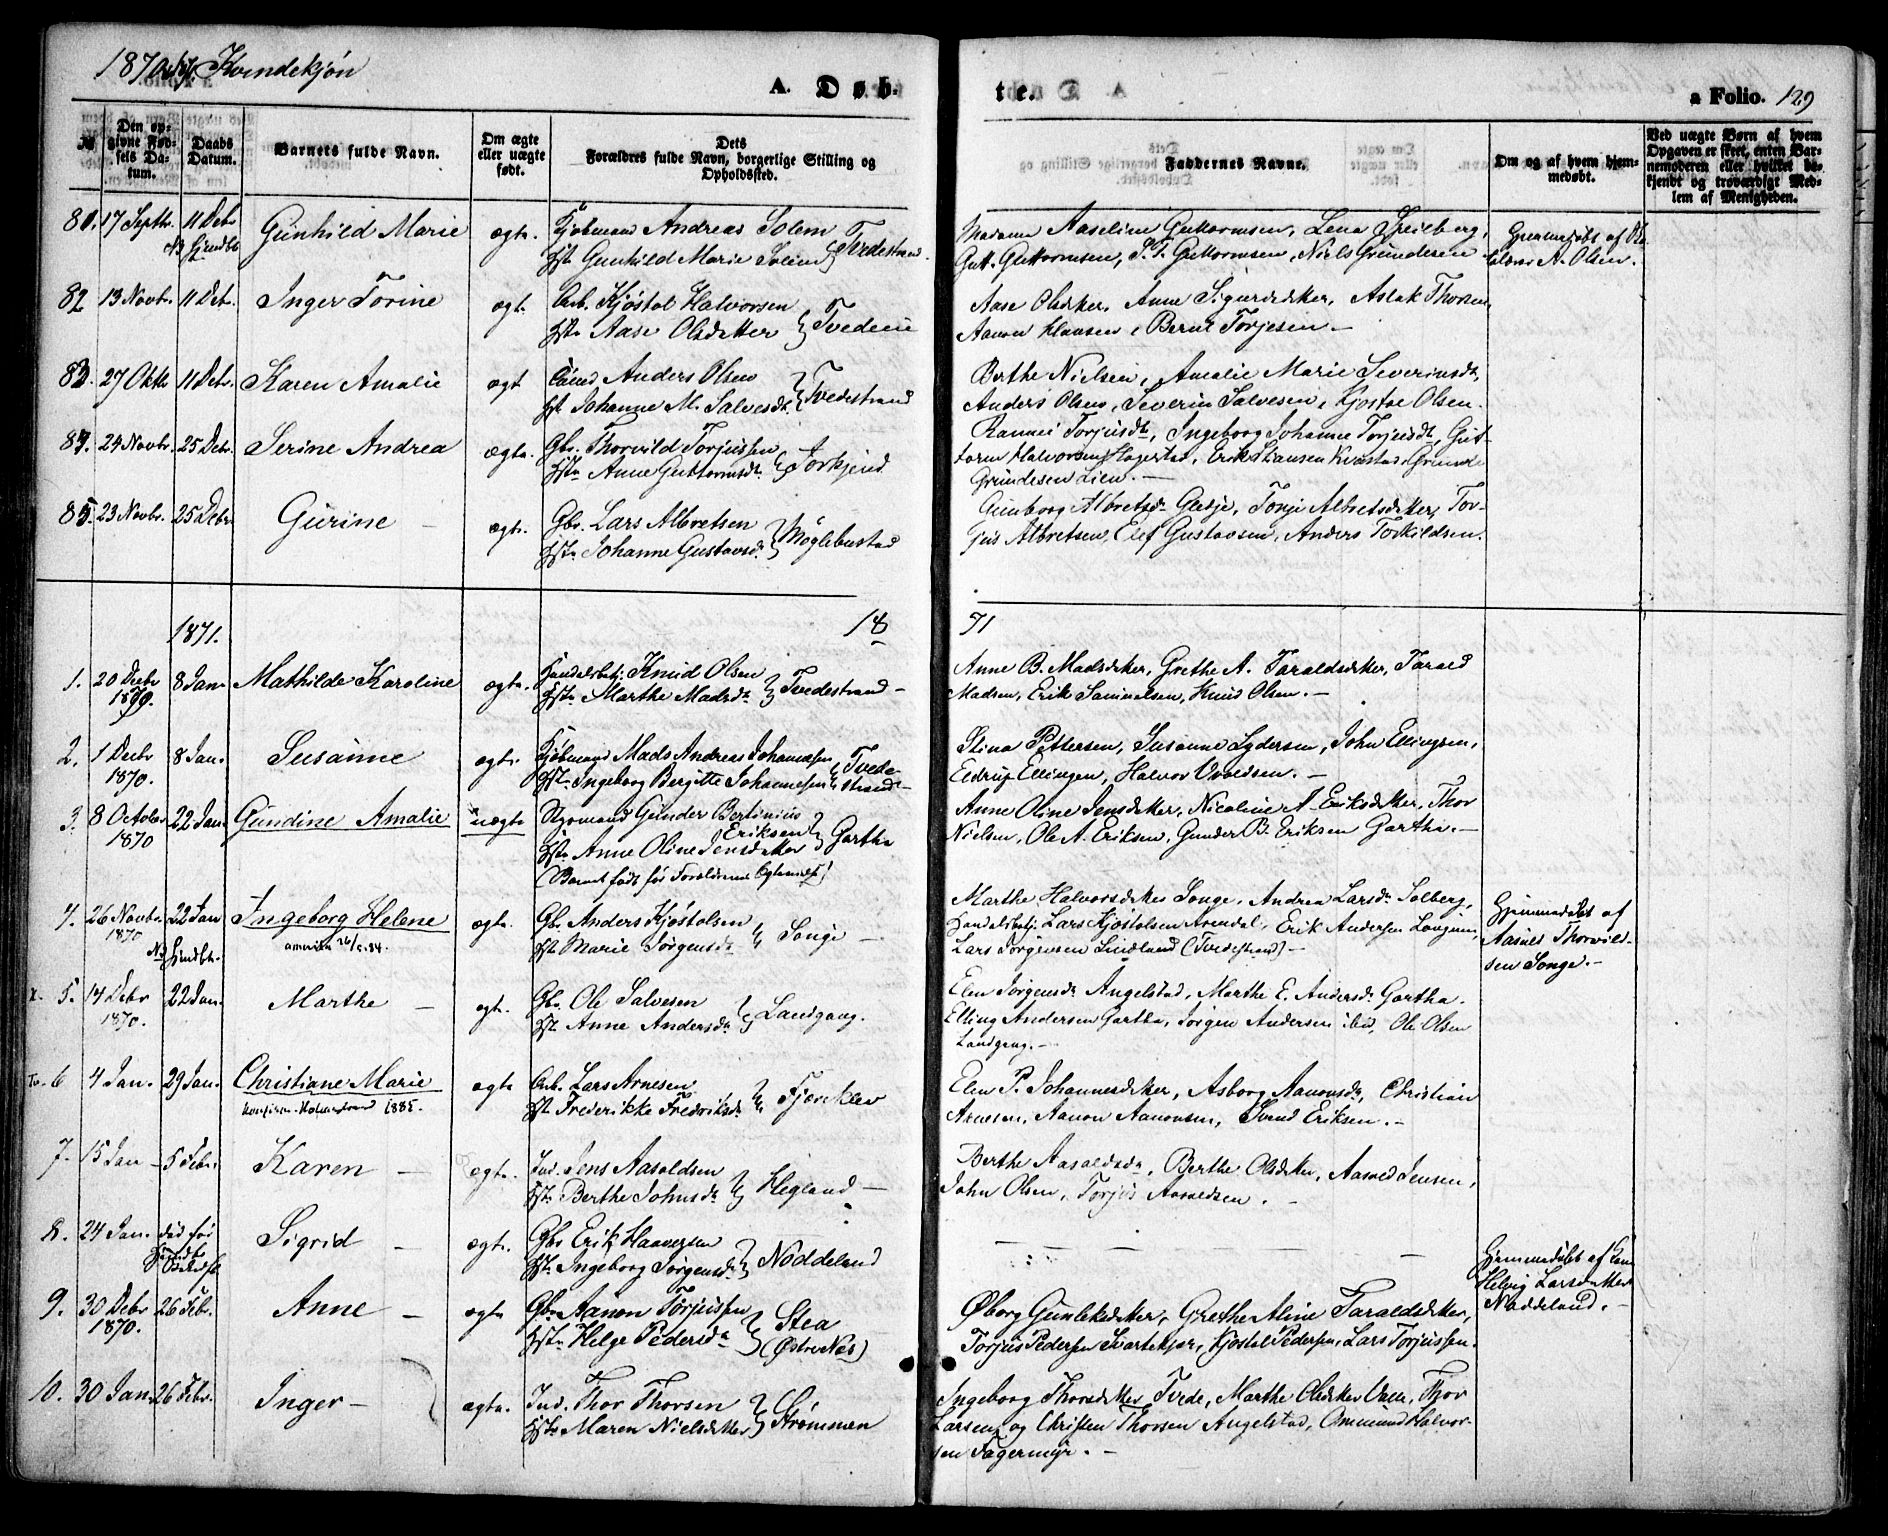 1870 og 71. Kvindekjøn
A. Døb-
te.
a Folio. 129
№
Den op-
givne Fød-
sels Da-
tum.
Daabs
Datum.
Barnets fulde Navn.
Om ægte
eller uægte
født.
Dets
Forældres fulde Navn, borgerlige Stilling og
Opholdssted.
Faddernes Navne.
Om og af hvem hjem-
medøbt.
Ved uægte Børn af hvem
Opgaven er skeet, enten Bar-
nemoderen eller hvilket be-
kjendt og troværdigt Med-
lem af Menigheden.
81. 17 Septbr. 11 Debr Gunhild Marie ægte. Kjøbmand Andreas Solem
Hst Gunhild Marie Solem } Tvedestrand.
Madame Aaseline Guttormsen, Lena Speilberg,
Gutt. Guttormsen, S. T. Guttormsen, Niels Grundesen
Hjemmedøbt af
A. Olsen.
82 13 Novbr. 11 Debr. Inger Torine ægt. Arb. Kjøstol Halvorsen
Hst Aase Olsdatter } Tvedene
Aase Olsdtter, Anne Sigurdsdtter, Aslak Thorsen,
Aanon Klausen, Bernt Torjesen. —
83. 27 Oktbr 11 Debr. Karen Amalie ægt Anders Olsen
Hst Johanne M. Salvesdt. } Tvedestrand
Berthe Nielsen, Amalie Marie Severinsdt,
Anders Olsen, Severin Salvesen, Kjøstol Olsen.
84. 24 Novbr. 25 Debr. Serine Andrea ægte. Gbr. Thorvild Torjussen
Hst Anne Guttormsdt. } Torkjend
Rannei Torjusdt, Ingeborg Johanne Torjusdt, Gut-
torm Halvorsen Hagestad, Erik Hansen Kvastad, Grunde
Grundesen Lien. —
85. 23 Novbr. 25 Debr Gurine — ægte. Gbr. Lars Albretsen
Hst Johanne Gustavsdt. } Møglebustad
Gunborg Albretsdt Gledje, Tonje Albretsdatter, Tor-
jus Albretsen, Elef Gustavsen, Anders Torkildsen.
1871.
18
71
1. 20 Debr
1870. 8 Jan. Mathilde Karoline ægte. Handelsbetj. Knud Olsen
Hst Marthe Madsdt } Tvedestrand —
Anne B. Madsdtter, Grethe A. Taraldsdtter, Tarald
Madsen, Erik Samuelsen, Knud Olsen. —
2. 1 Debr
1870. 8 Jan. Susanne ægte. Kjøbmand Mads Andreas Johannesen
Hst. Ingeborg Bergitte Johannesen } Tvede-
strand —
Stina Pettersen, Susanne Lydersen, John Ellingsen,
Eldrup Ellingsen, Halvor Ovedsen. —
3. 8 October
1870 22 Jan Gundine Amalie uægte Styrmand Gunder Bertinius
Eriksen
Hst Anne Oline Jensdatter } Gartha
(Barnet født før Forældrenes Ægteskab)
Anne Oline Jensdtter, Nicoline A. Eriksdtter, Thor
Nielsen, Ole A. Eriksen, Gunder B. Eriksen Gartha. —
4. 26 Novbr.
1870 22 Jan Ingeborg Helene ægte. Gbr. Anders Kjøstolsen
Hst Marie Jørgensdt } Songe —
Marthe Halvorsdtter Songe, Andrea Larsdt Solberg,
Handelsbetj. Lars Kjøstolsen Arendal, Erik Andersen
Lars Jørgensen Lindland (Tvedestrand) —
Hjemmedøbt af
Aasuld Thorvild-
sen Songe. —
x. 5. 14 Debr
1870. 22 Jan. Marthe — ægte. Gbr. Ole Salvesen
Hst. Anne Andersdt } Landgang.
Elen Jørgensdt Angelstad, Marthe E. Andersdt Gartha.
Elling Andersen Gartha, Jørgen Andersen ibid, Ole Olsen
Landgang. —
6 4 Jan. 29 Jan. Christiane Marie ægte Arb. Lars Arnesen
1885.
Hst. Frederikke Fredriksdt. } Fjæreklev
Elen P. Johannesdtter, Asborg Aanonsdt, Christian
Arnesen, Aanon Aanonsen, Svend Eriksen. —
7. 15 Jan — 5 Febr. Karen — ægte. Ind. Jens Aasoldsen
Hst. Berthe Johnsdt } Hegland —
Berthe Aasoldsdt, Berthe Olsdtter, Aasold Jensen,
John Olsen, Torjus Aasoldsen. —
8. 24 Jan. død før Sigrid — ægte. Gbr Erik Haaversen
Hst. Ingeborg Jørgensdt. } Noddeland
Hjemmedøbt af
Helvig Larsdatter
Noddeland. —
9. 30 Debr
1870. 26 Febr. Anne — ægte Gbr Aanon Torjussen
Hst. Helge Pedersdt } Stea
(Østre Næs)
Øborg Gunleksdtter, Grethe Aline Taraldsdtter,
Torjus Pedersen Svartekjær, Kjøstol Pedersen, Lars Torjussen.
10. 30 Jan. 26 Febr. Inger — ægte. Ind. Thor Thorsen
Hst. Maren Nielsdtter } Strømmen
Ingeborg Thorsdtter Tvede, Marthe Olsdtter Vaae, Thor
Larsen og Christen Thorsen Angelstad, Ommund Halvor-
sen Fagermyr. —